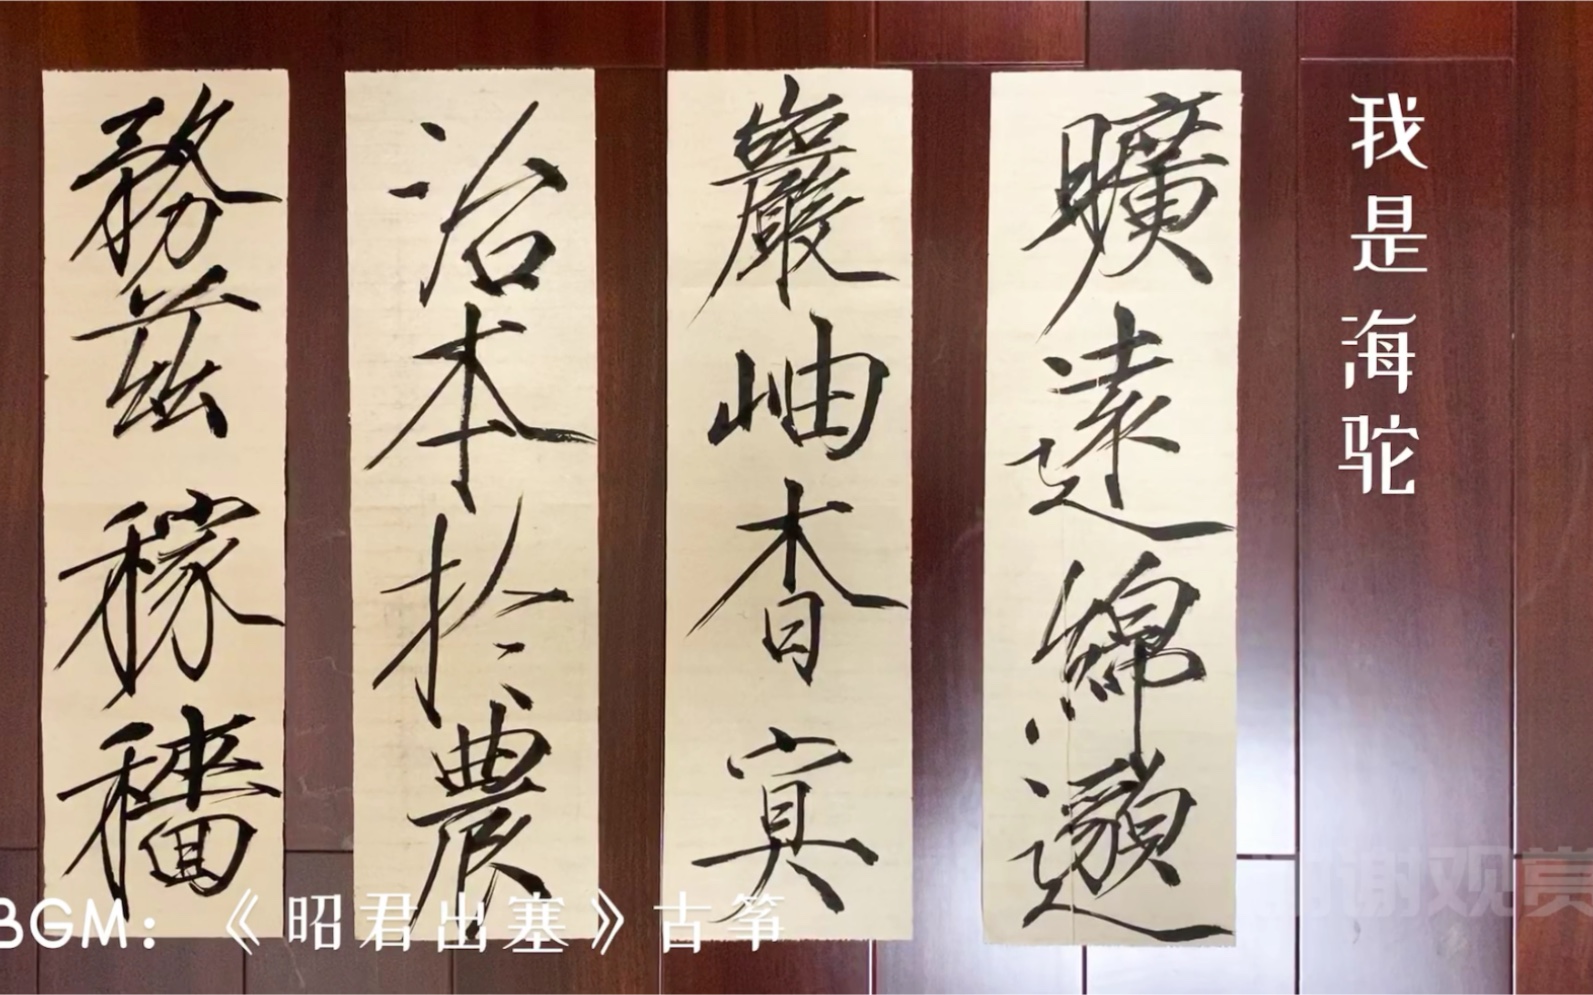 我是海驼
曠遠綿邈
巖岫杳冥
治本於農
務茲稼穡
BGM：《昭君出塞》古筝
谢观赏